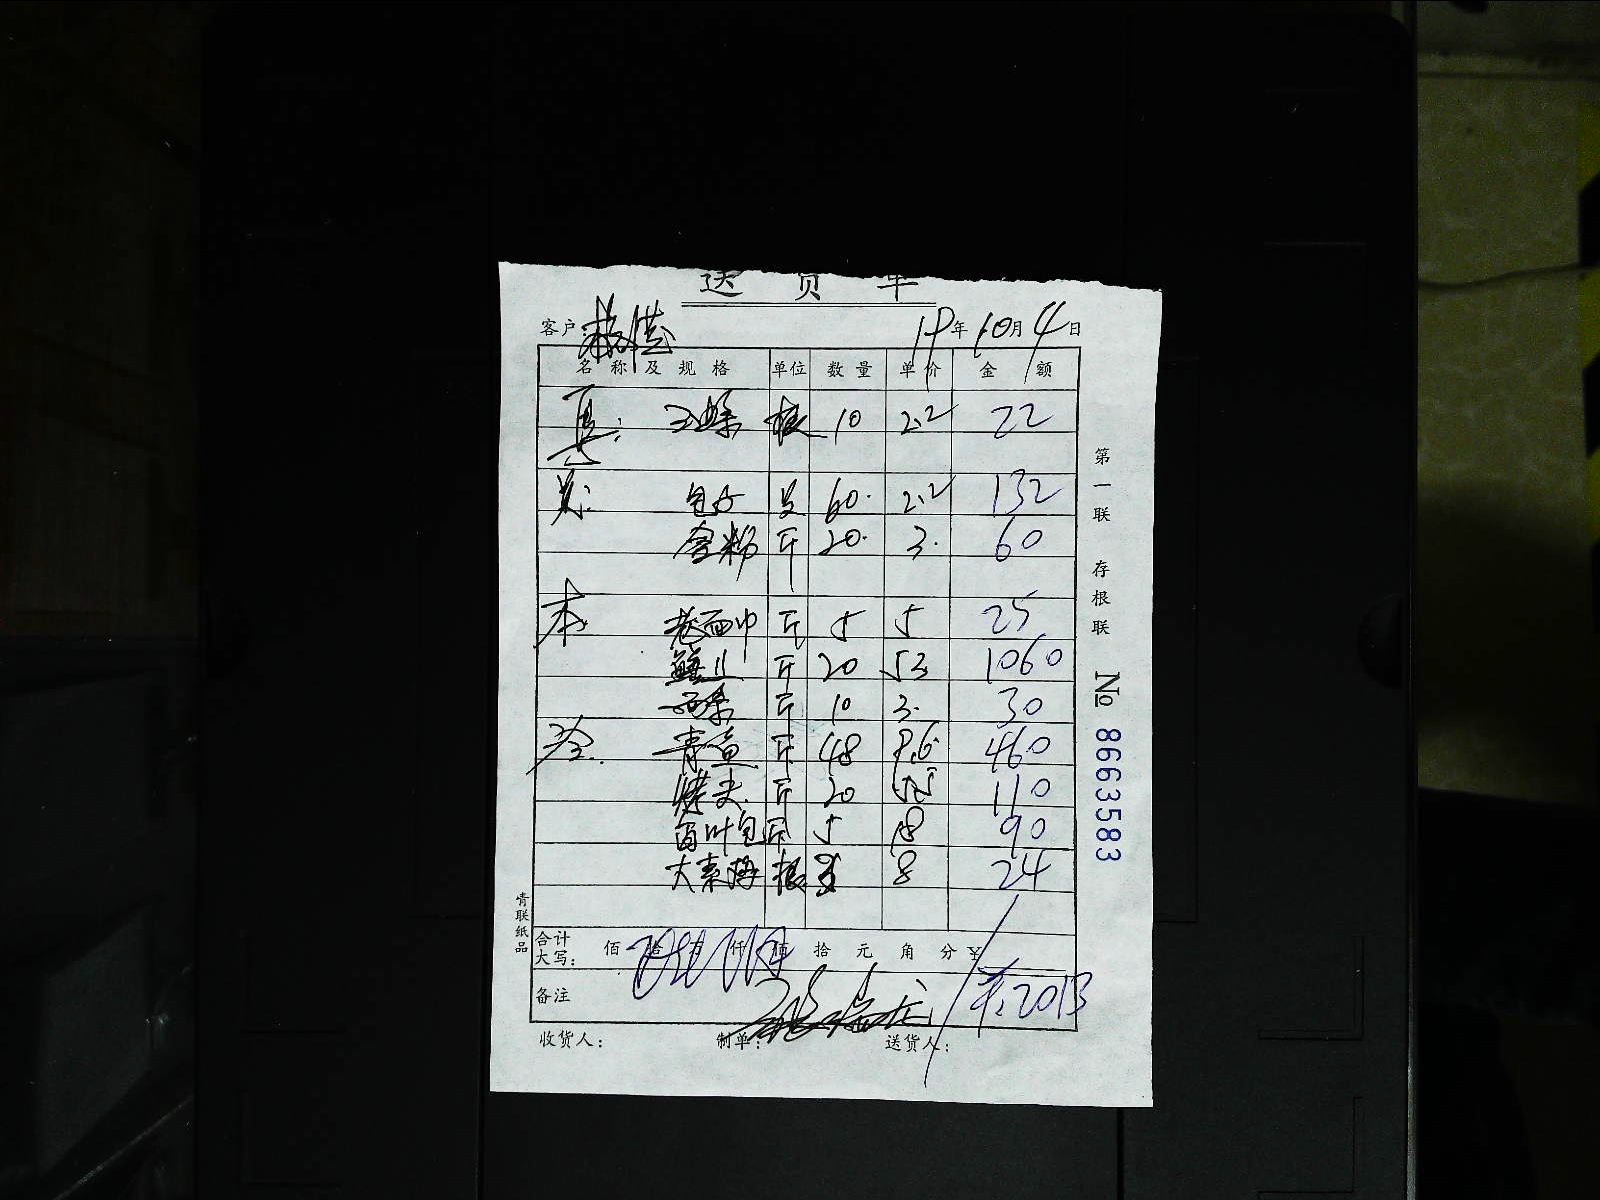 送货单
客户: 19年10月4日
名称及规格 单位 数量 单价 金额
根 10 2.2 22
包子 60. 2.2 132
斤 20. 3. 60
本 老面 斤 5 5 25
斤 20 53 1060
斤 10 3. 30
青鱼 斤 48 9.6 460
烤夫 斤 20 5.5 110
百叶包 斤 5 18 90
大素 根 3 8 24
合计大写: 佰拾万仟佰拾元角分¥
备注 2013
收货人: 制单: 送货人:
第一联 存根联
№ 8663583
青联纸品